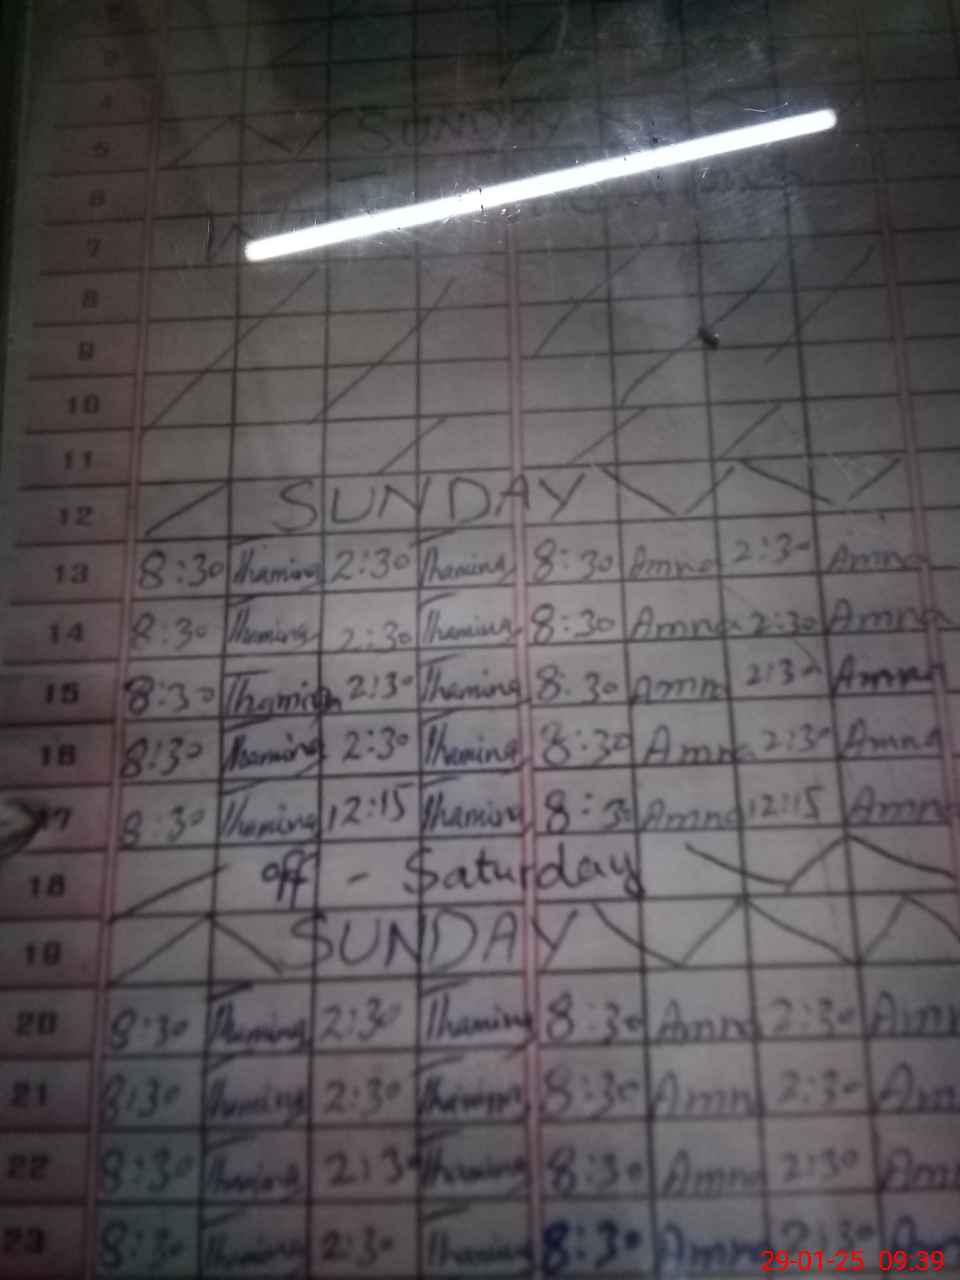 4
5 SUNDAY
6
7
8
9
10
11
12 SUNDAY
13 8:30 Thaming 2:30 Thaming 8:30 Amna 2:30 Amna
14 8:30 Thaming 2:30 Thaming 8:30 Amna 2:30 Amna
15 8:30 Thaming 2:30 Thaming 8:30 Amn 2:30 Amna
16 8:30 Thaming 2:30 Thaming 8:30 Amna 2:30 Amna
17 8:30 Thaming 12:15 Thaming 8:30 Amna 12:15 Amna
18 off - Saturday
19 SUNDAY
20 8:30 Thaming 2:30 Thaming 8:30 Amn 2:30 Amn
21 8:30 Thaming 2:30 Thaming 8:30 Amn 2:30 Am
22 8:30 Thaming 2:30 Thaming 8:30 Amn 2:30 Am
23 8:30 Thaming 2:30 Thaming 8:30 Amn 2:30 Am
29-01-25 09:39